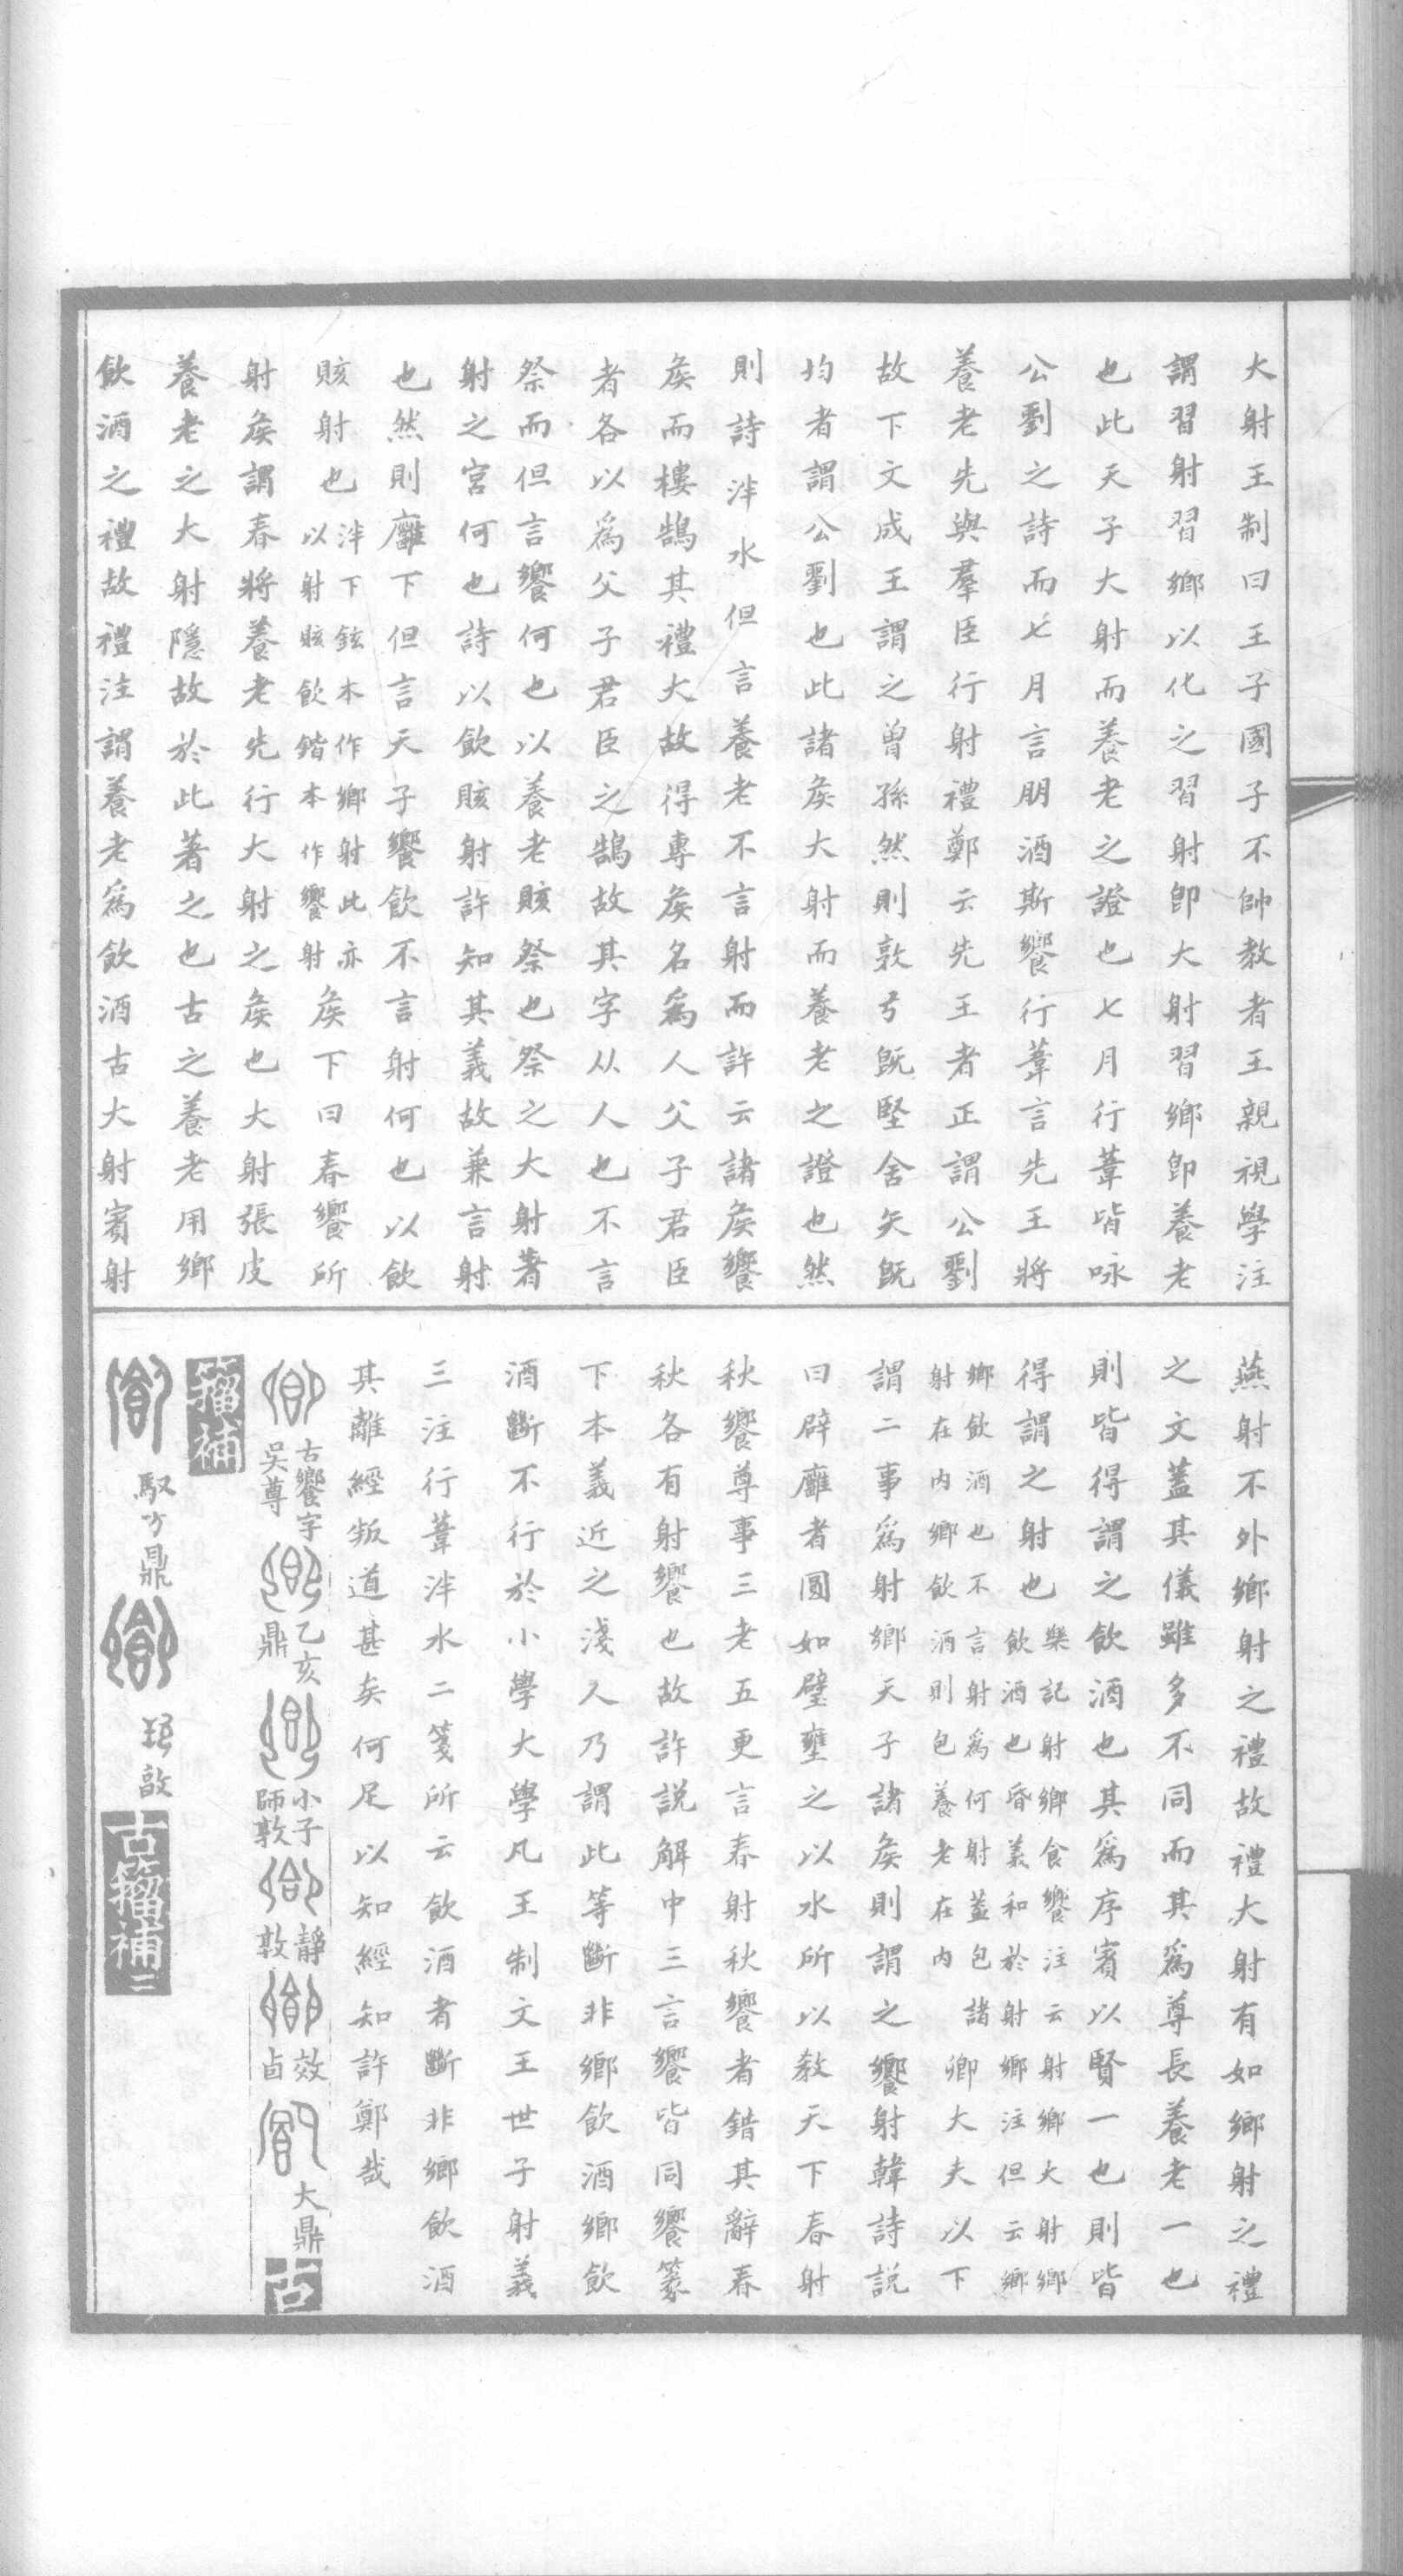 大射王制曰王子國子不帥教者王親視學注
謂習射習鄉以化之習射卽大射習鄉卽養老
也此天子大射而養老之證也七月行葦皆咏
公劉之詩而七月言朋酒斯饗行葦言先王將
養老先與羣臣行射禮鄭云先王者正謂公劉
故下文成王謂之曾孫然則敦弓既堅舍矢既
均者謂公劉也此諸矦大射而養老之證也然
則詩泮水但言養老不言射而許云諸矦饗
矦而棲鵠其禮大故得專矦名爲人父子君臣
者各以爲父子君臣之鵠故其字从人也不言
祭而但言饗何也以養老賅祭也祭之大射著
射之宮何也詩以飲賅射許知其義故兼言射
也然則廱下但言天子饗飲不言射何也以飲
賅射也泮下鉉本作鄉射此亦以射賅飲鍇本作饗射矦下曰春饗所
射矦謂春將養老先行大射之矦也大射張皮
養老之大射隱故於此著之也古之養老用鄉
飲酒之禮故禮注謂養老爲飲酒古大射賓射
燕射不外鄉射之禮故禮大射有如鄉射之禮
之文蓋其儀雖多不同而其爲尊長養老一也
則皆得謂之飲酒也其爲序賓以賢一也則皆
得謂之射也樂記射鄉食饗注云射鄉大射鄉飲酒也昏義和於射鄉注但云鄉
鄉飲酒也不言射爲何射蓋包諸射在内鄉飲酒則包養老在内卿大夫以下
謂二事爲射鄉天子諸矦則謂之饗射韓詩説
曰辟廱者圓如璧壅之以水所以教天下春射
秋饗尊事三老五更言春射秋饗者錯其辭春
秋各有射饗也故許説解中三言饗皆同饗篆
下本義近之淺人乃謂此等斷非鄉飲酒鄉飲
酒斷不行於小學大學凡王制文王世子射義
三注行葦泮水二箋所云飲酒者斷非鄉飲酒
其離經叛道甚矣何足以知經知許鄭哉
古饗字吳尊 乙亥鼎 小子師敦 靜敦 效卣 大鼎 古
籀補
馭方鼎 敔 古籀補二